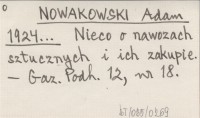 NOWAKOWSKI Adam
1924... Nieco o nawozach
sztucznych i ich zakupie.
– Gaz. Podh. 12, nr 18.